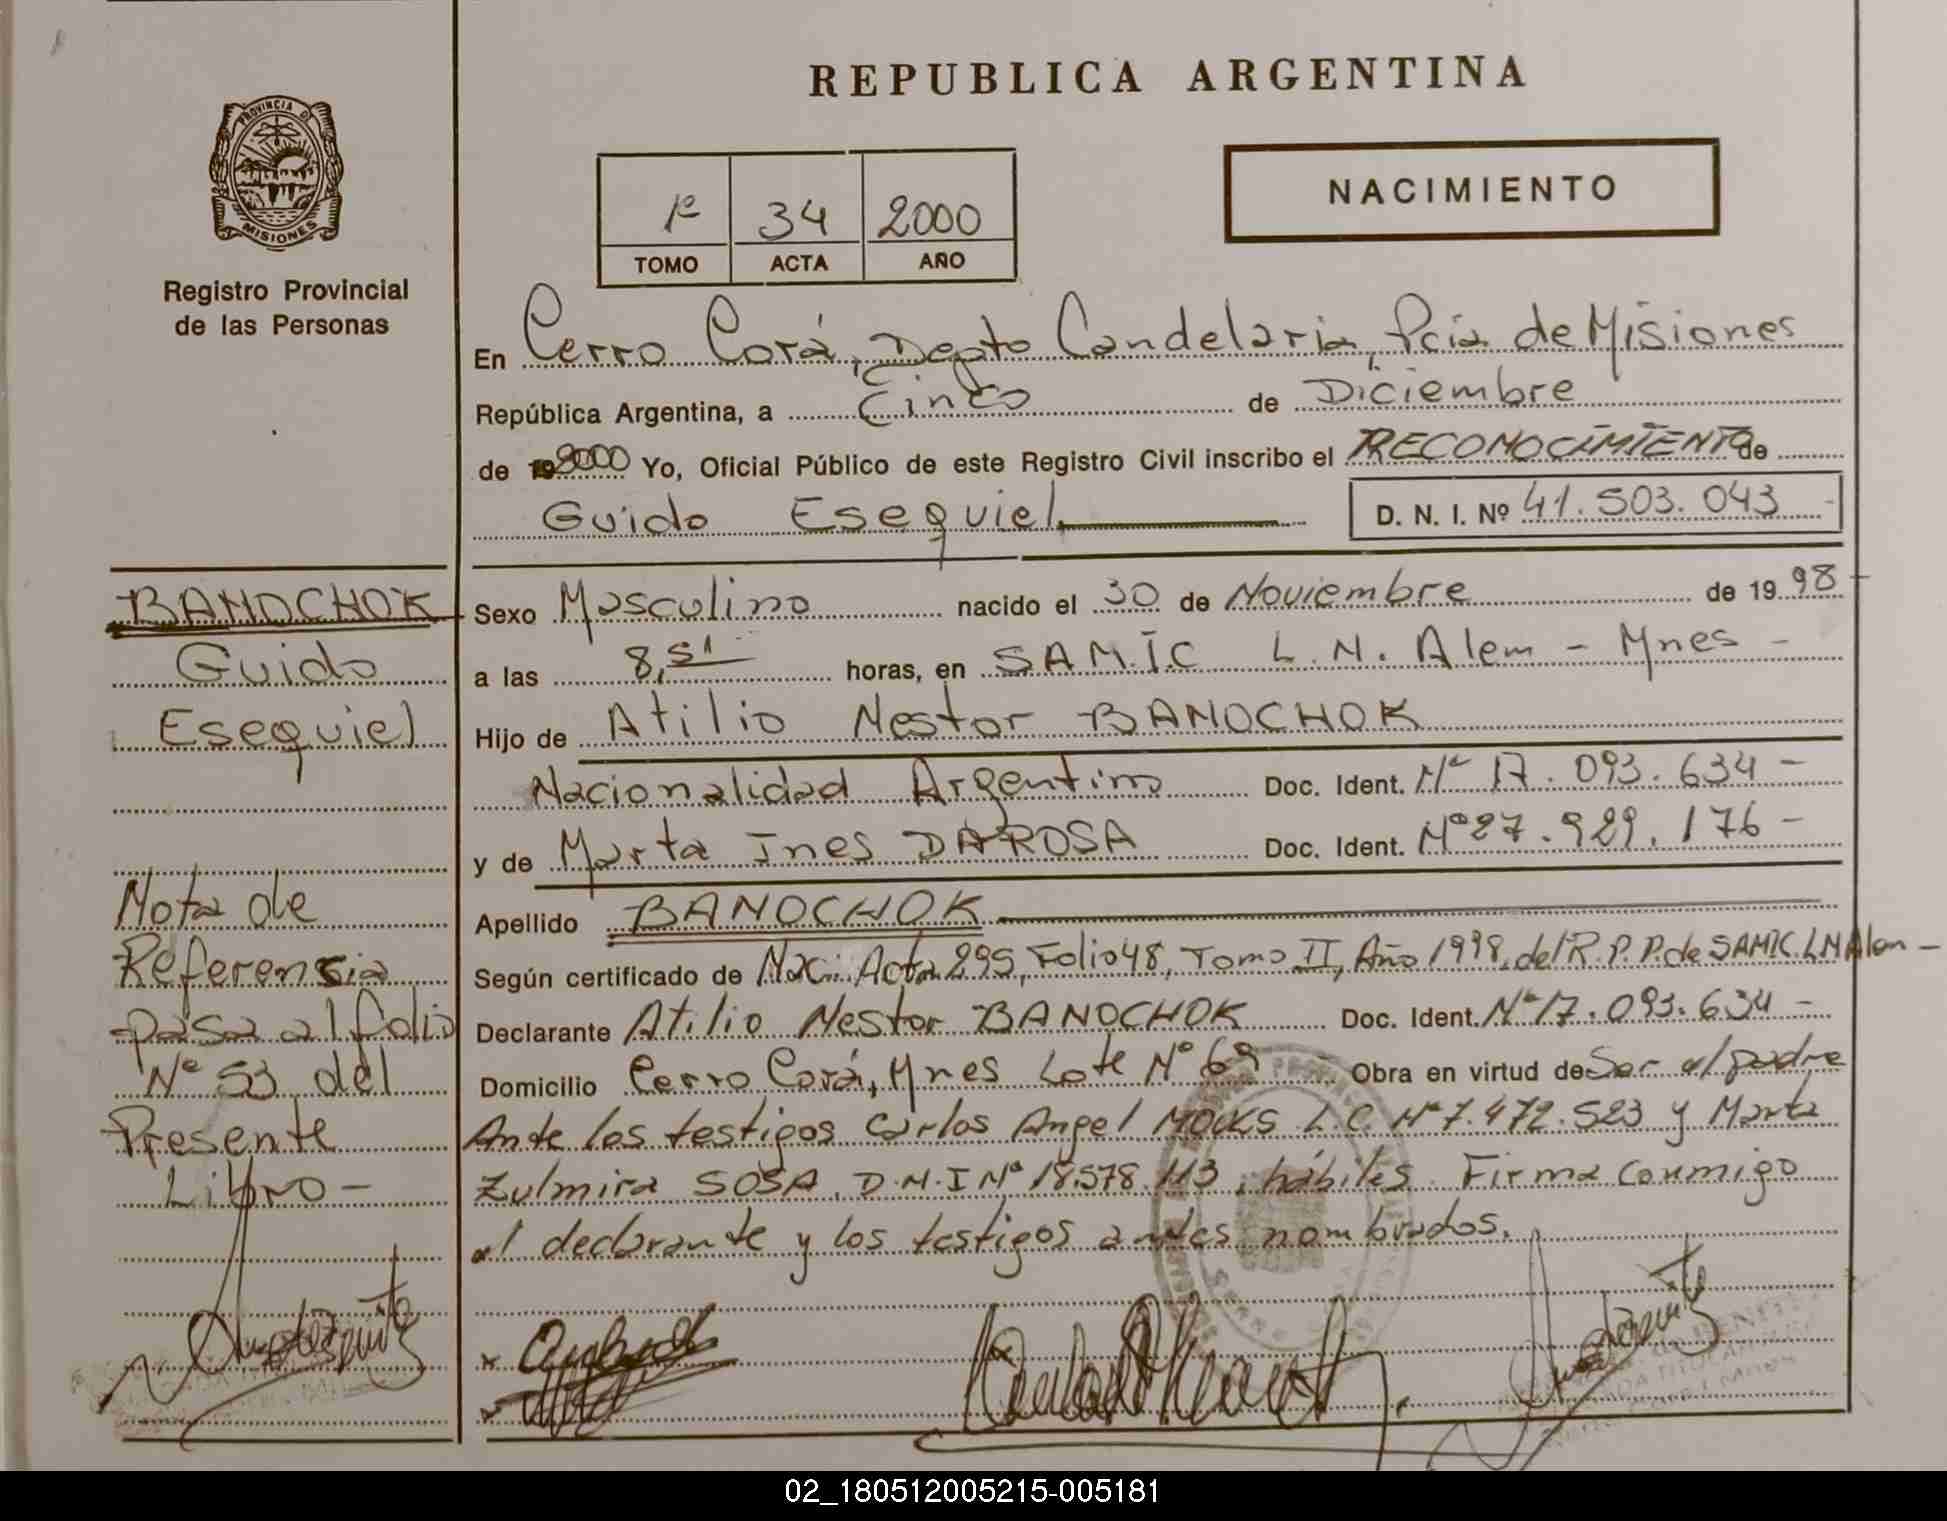 REPUBLICA ARGENTINA
PROVINCIA DE
MISIONES
Registro Provincial
de las Personas
1º 34 2000
TOMO ACTA AÑO
NACIMIENTO
En Cerro Corá, Depto Candelaria, Pcia de Misiones
República Argentina, a Cinco de Diciembre
de 2000 Yo, Oficial Público de este Registro Civil inscribo el RECONOCIMIENTO de
Guido Esequiel D. N. I. Nº 41.503.043
BANOCHOK
Guido
Esequiel
Nota de
Referencia
pasa al folio
Nº 53 del
Presente
Libro -
Sexo Masculino nacido el 30 de Noviembre de 1998
a las 8,51 horas, en SAM.I.C L. N. Alem - Mnes -
Hijo de Atilio Nestor BANOCHOK
Nacionalidad Argentino Doc. Ident. Nº 17.093.634 -
y de Marta Ines DAROSA Doc. Ident. Nº 27.929.176 -
Apellido BANOCHOK
Según certificado de Naci. Acta 295, Folio 48, Tomo II, Año 1998, del R.P.P. de SAMIC. L N Alem -
Declarante Atilio Nestor BANOCHOK Doc. Ident. Nº 17.093.634 -
Domicilio Cerro Corá, Mnes Lote Nº 69 Obra en virtud de Ser el padre
Ante los testigos Carlos Angel L.C. Nº 7.472.523 y Marta
Zulmira SOSA, D.N.I Nº 18.578.113, hábiles. Firma conmigo
el declarante y los testigos antes nombrados.
02_180512005215-005181